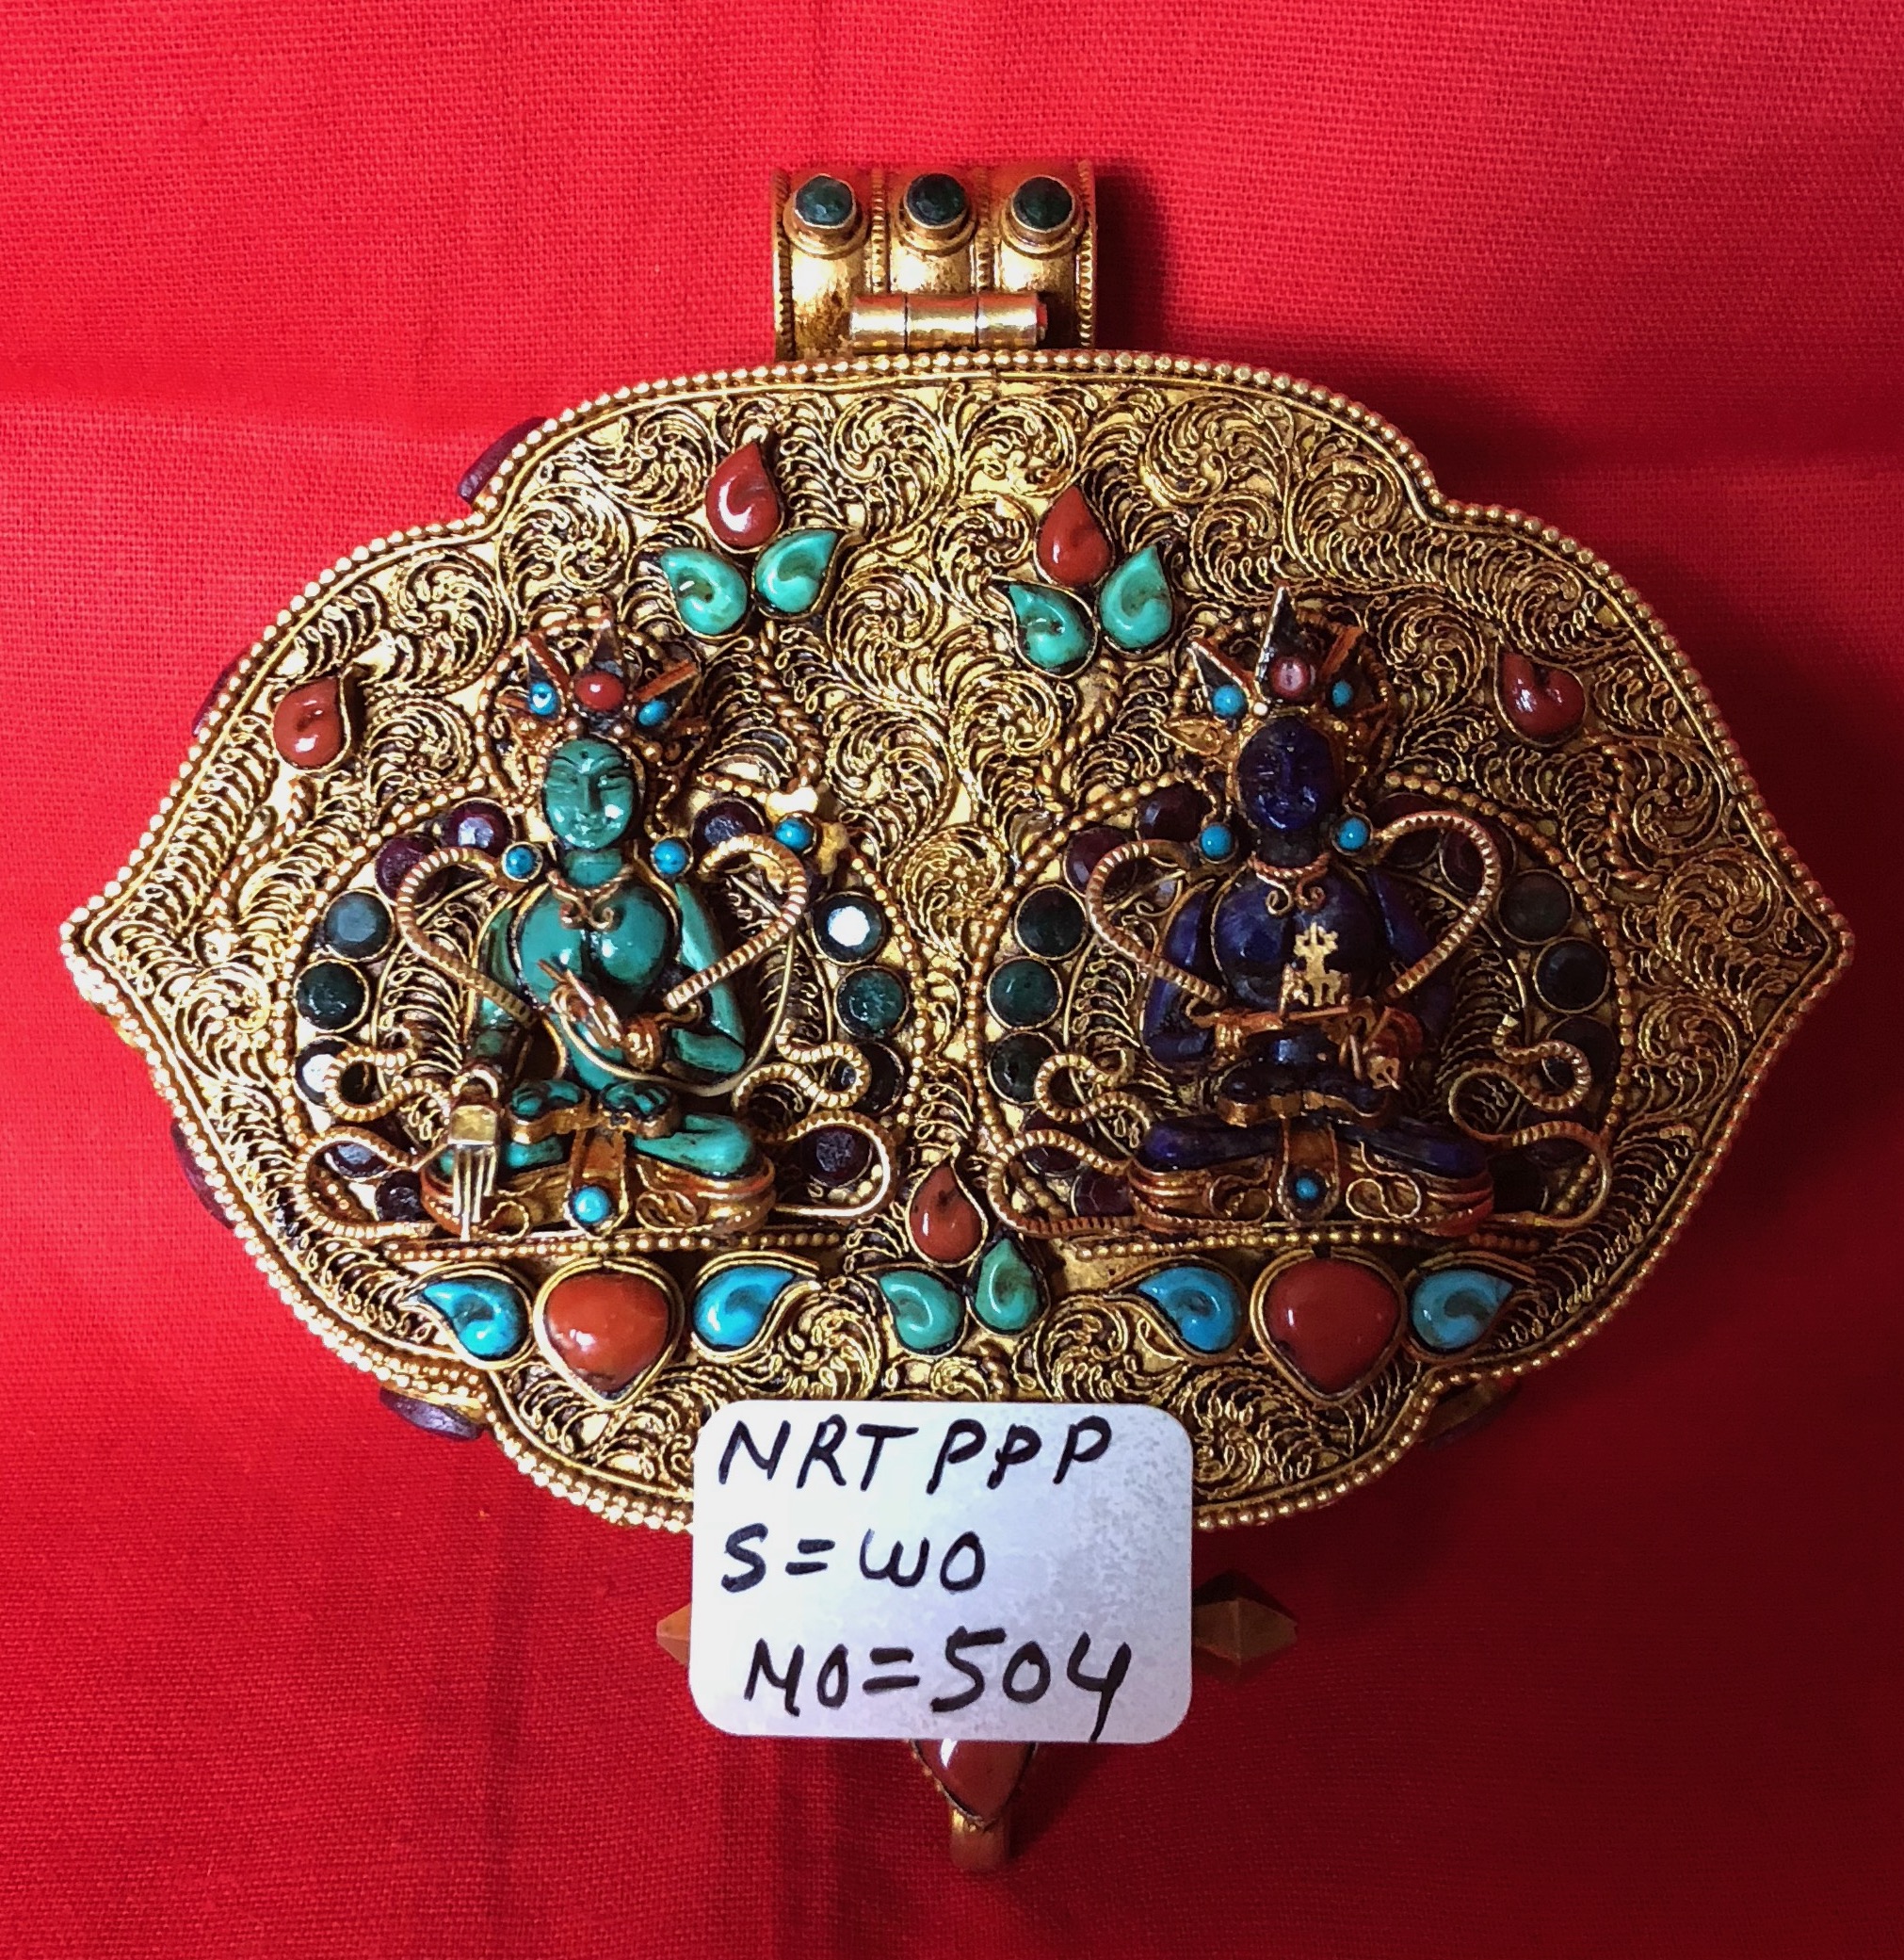 NRT PPP
S=WO
NO=504